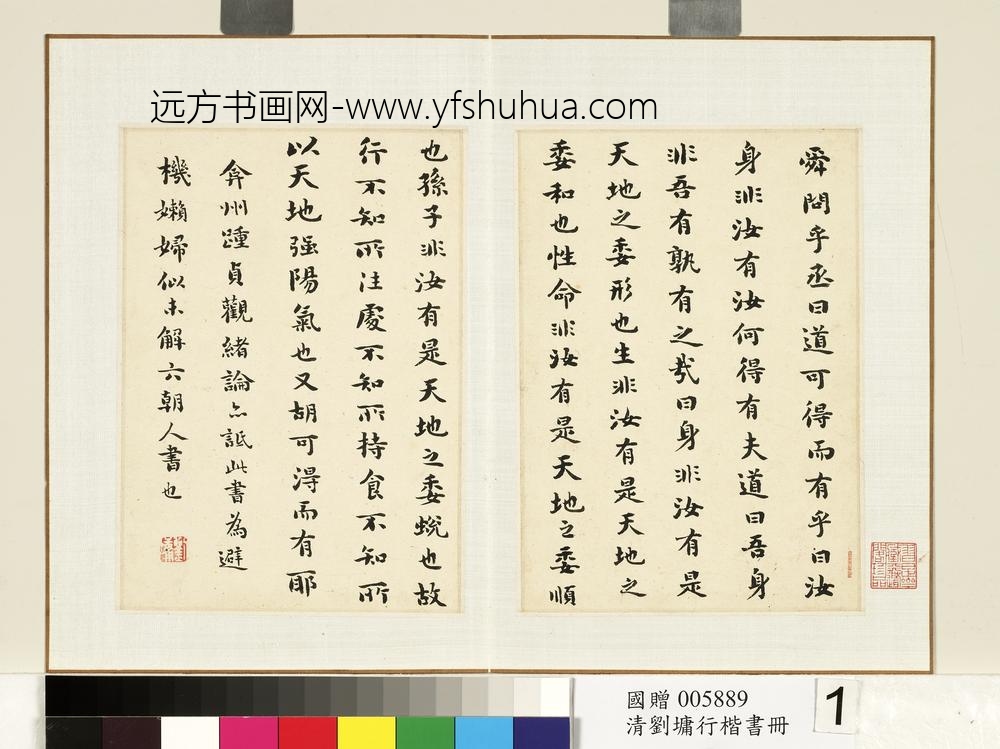 远方书画网-www.yfshuhua.com
舜問乎丞曰道可得而有乎曰汝
身非汝有汝何得有夫道曰吾身
非吾有孰有之哉曰身非汝有是
天地之委形也生非汝有是天地之
委和也性命非汝有是天地之委順
也孫子非汝有是天地之委蛻也故
行不知所往處不知所持食不知所
以天地强陽氣也又胡可得而有耶
弇州踵貞觀緒論亦詆此書為避
機嬾婦似未解六朝人書也
國贈 005889
清劉墉行楷書冊
1